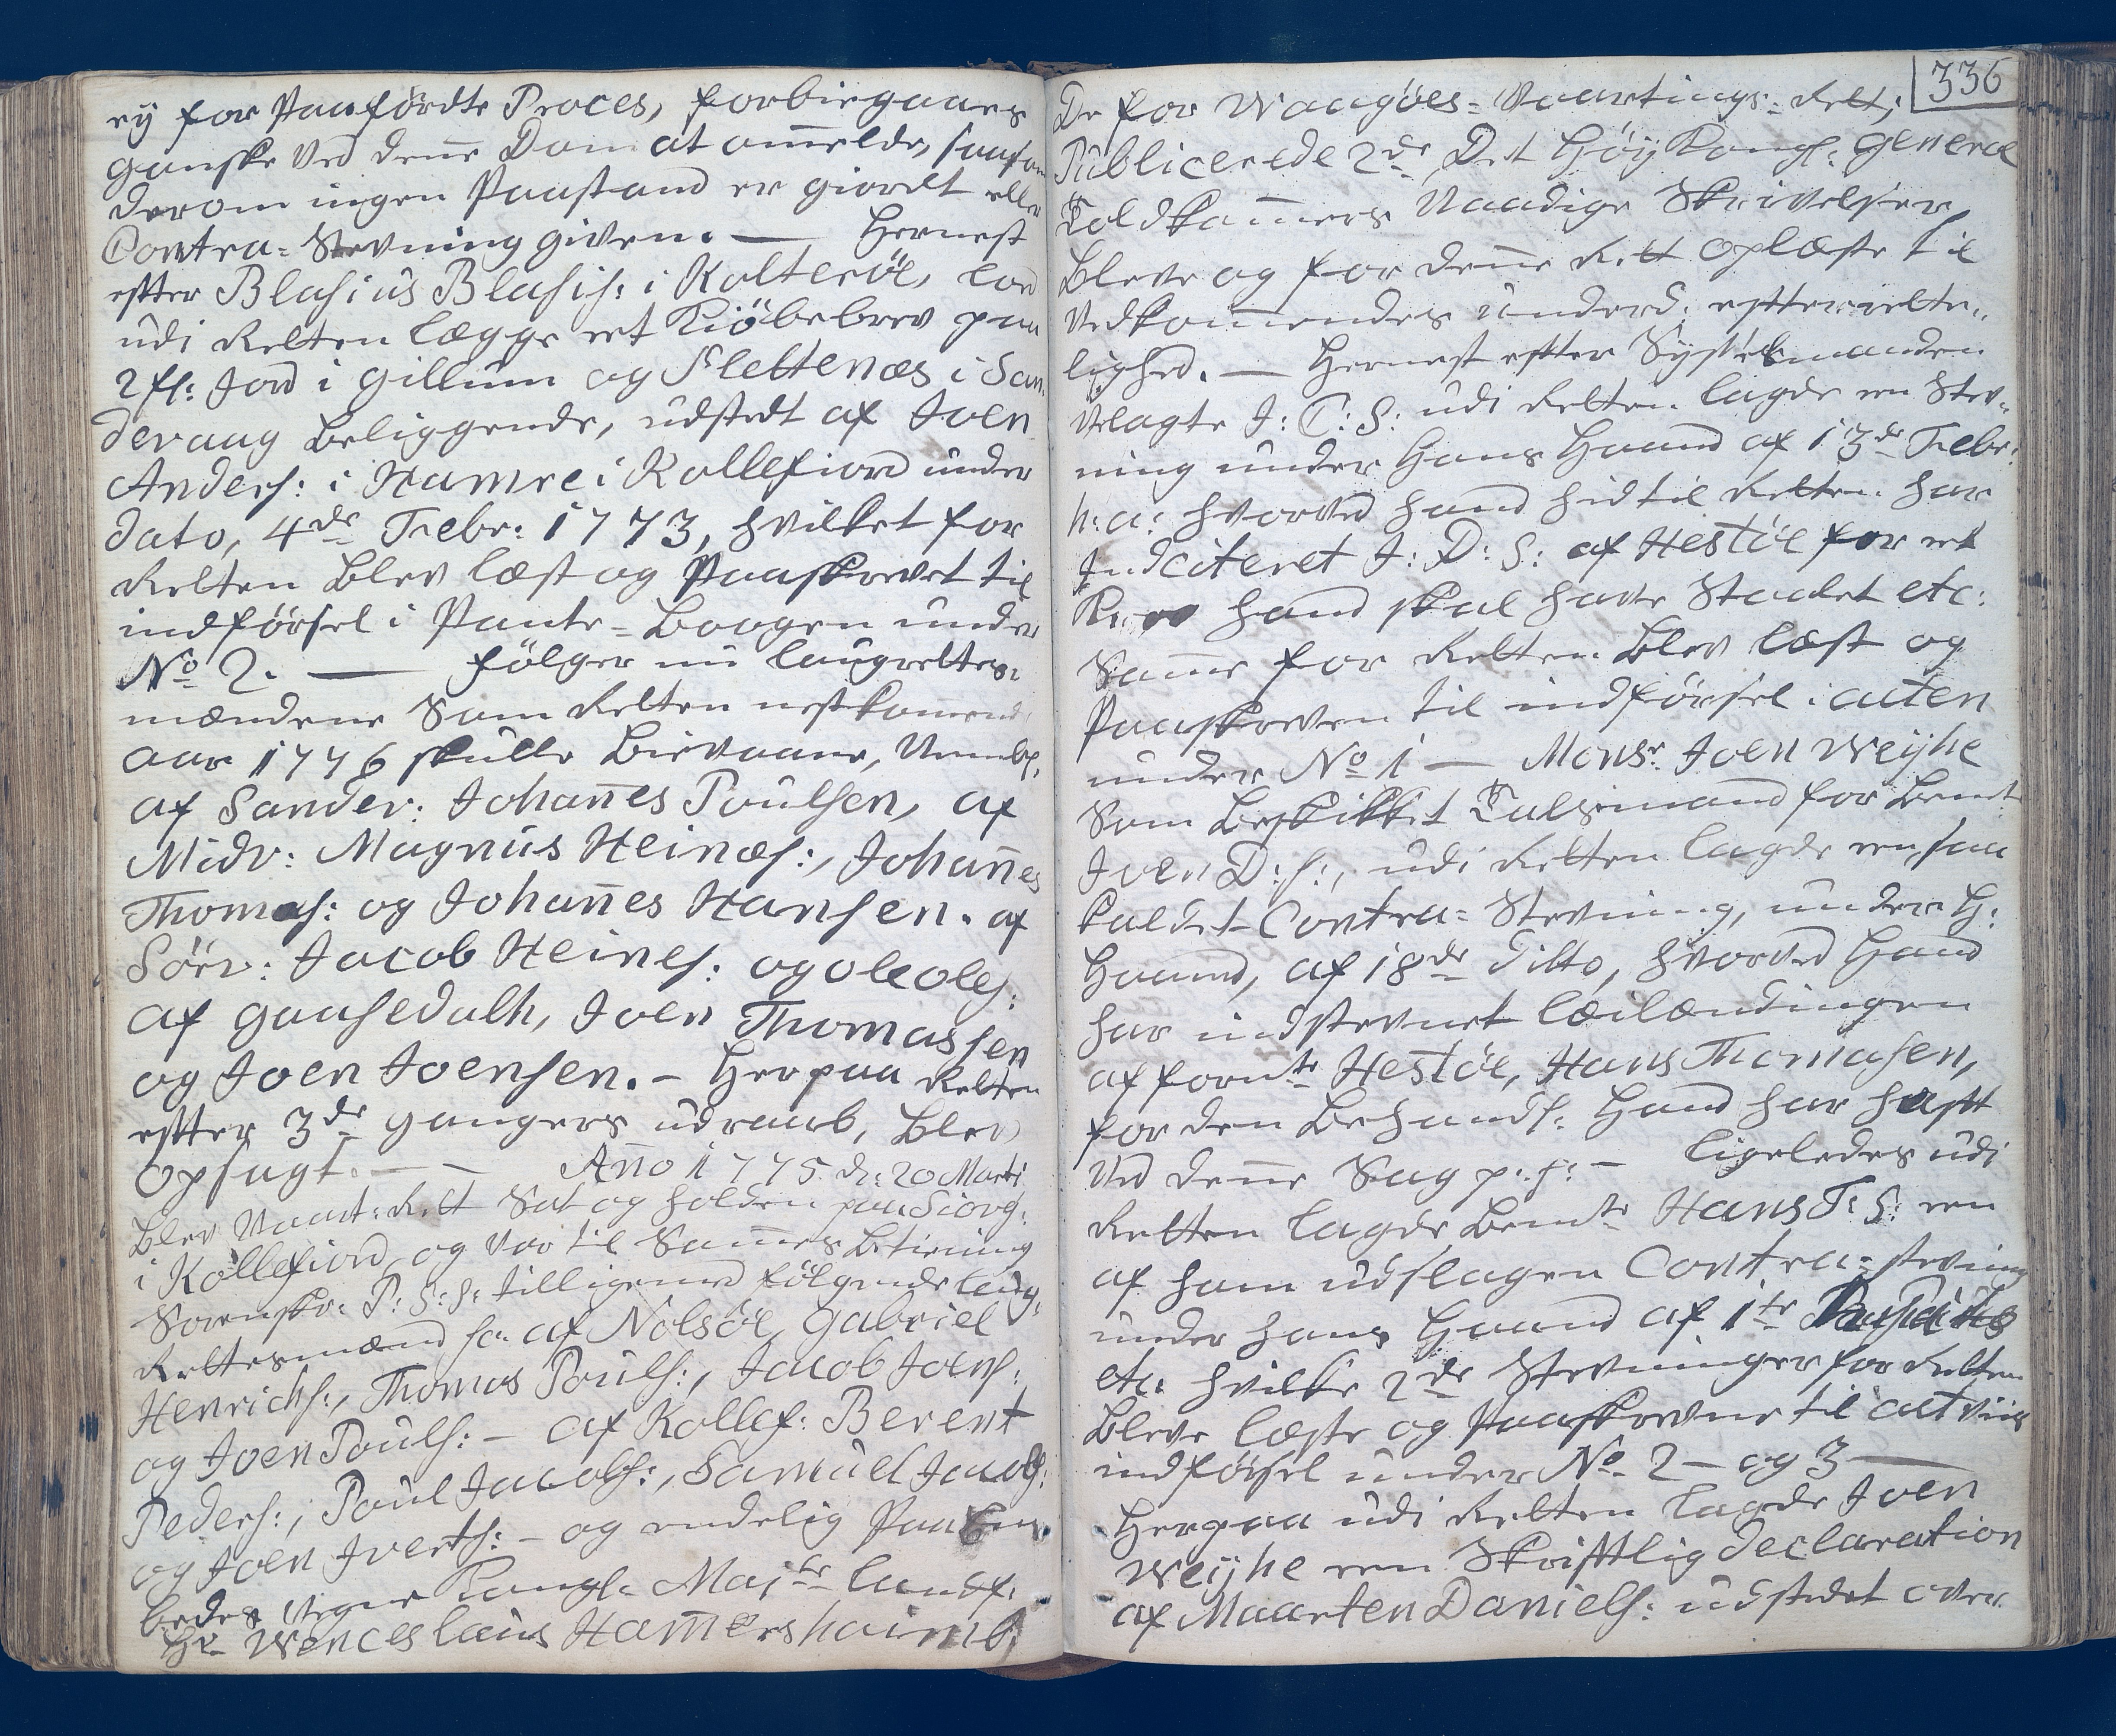 ey for Paafördte Proces, forbiegaaes
ganske ved denne Dom at ommelde, saasom
derom ingen Paastand er giordt eller
Contra-Stevning given. — Hernest
efter Blasius Blasis: i Kolterøe, lod
udi Retten lægge et Kiöbebrev paa
2 fl: Jord i Gillum og Slettenæs i San¬
dervaag beliggende, udstedt af Joen
Anders: i Hamre i Kollefiord under
dato, 4de Febr: 1773, hvilket for
Retten blev læst og Paaskrevet til
indförsel i Pante-Boogen under
No 2. — Fölger nu laugrettes:
mændene som Retten nestkommend
aar 1776 skulle bievaane, Nembl:
af Sander: Johannes Poulsen, af
Midv: Magnus Heinæs:, Johannes
Thomas: og Johannes Hansen. af
Sörv: Jacob Heines: og Ole Oles:
af Gaasedalh, Joen Thomassen
og Joen Joensen. – Herpaa Retten
efter 3de gangers udraab, blev
opsagt. — — Anno 1775 d: 20 Marti
blev Vaart: Rett Sat og holden paa Siovg:
i Kollefiord, og var til Sammes betiening
Sorenskr: P: S: S: tilligemed fölgende laug:
Rettesmænd so: af Nolsöe, Gabriel
Henrichs:, Thomas Pouls:, Jacob Joens:
og Joen Pouls: – af Kollef: Berent
Peders:, Poul Jacobs:, Samuel Jacobs:
og Joen Joerts: – og endelig Paa
bedes vegne Kongl: Majts Landf:
Hr Wenceslaus Hammershaimb,
336
De for Waagöes-Vaartings-Rett,
Publicerede 2de, Det Höy Kongl: General
Toldkammers Naadige Skrivelser,
bleve og for denne Rett oplæste til
vedkommendes underd: efterrette¬
lighed. — Hernest efter Sysselmanden
Velagte J: C: S: udi Retten lagde en Stev¬
ning under Hans Haand af 13de Febr:
h: a: hvorved hand hid til Retten har
Indciteret J: D: S: af Hestöe for et
hand skal have Staalet etc:
Samme for Retten blev læst og
Paaskreven til indförsel i acten
under No 1 — Monsr. Joen Weyhe
Som beskikket Talsmand for bemte
Joen D: S:, udi Retten lagde en saa
kaldet Contra-Stevning, under H:
Haand, af 18de ditto, hvorved Hand
har indstevnet læilændingen
af fornte Hestöe, Hans Thomasen,
for den behandl: Hand har haft
ved denne Sag p: s: – ligeledes udi
Retten lagde bemte Hans T: S: en
af ham udslagen Contra-Stevning
under hans Haand af 1te
etc: hvilke 2de Stevninger for Retten
bleve læste og Paaskrevne til act viis
indförsel under No 2 – og 3 —
Herpaa udi Retten lagde Joen
Weyhe een Skriftlig Declaration
af Maarten Daniels: udstedet over